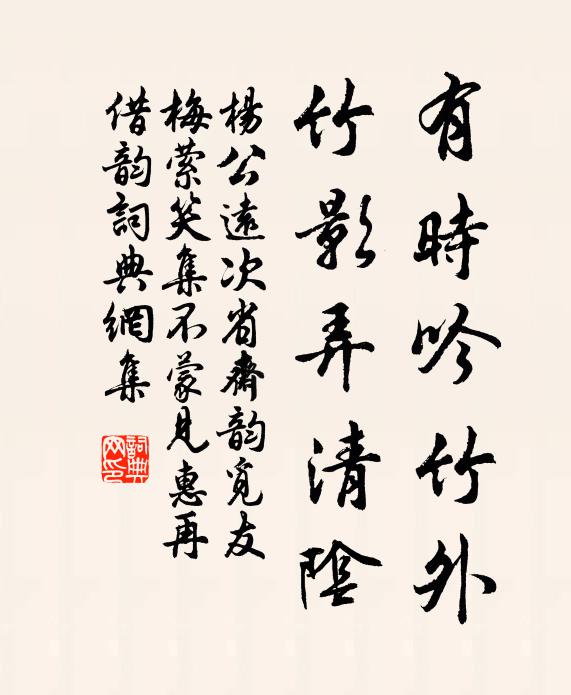 有時吟竹外
竹影弄清陰
楊公遠次省齋韵覓友
梅索笑集不蒙見惠再
借韵詞典網集
詞典网印